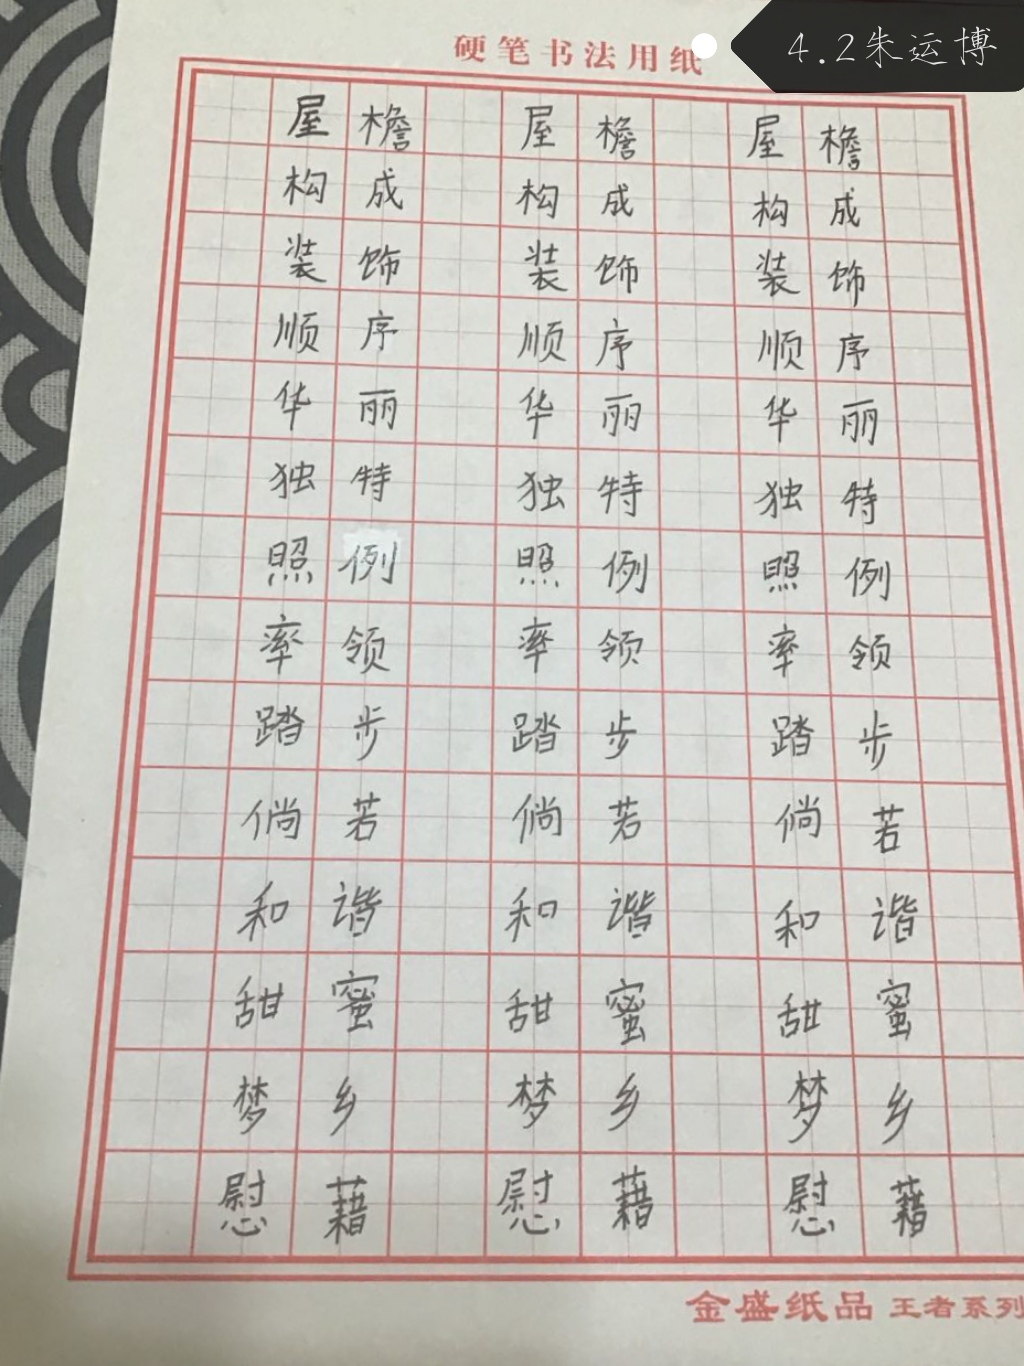 硬笔书法用纸
4.2朱运博
屋檐 屋檐 屋檐
构成 构成 构成
装饰 装饰 装饰
顺序 顺序 顺序
华丽 华丽 华丽
独特 独特 独特
照例 照例 照例
率领 率领 率领
踏步 踏步 踏步
倘若 倘若 倘若
和谐 和谐 和谐
甜蜜 甜蜜 甜蜜
梦乡 梦乡 梦乡
慰藉 慰藉 慰藉
金盛纸品 王者系列